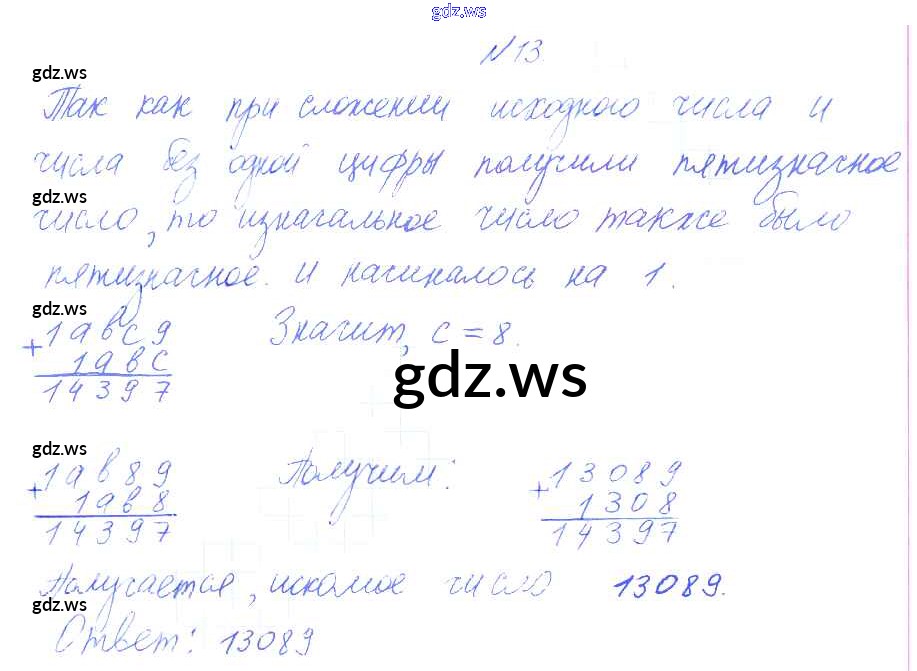 gdz.ws
№ 13.
gdz.ws
Так как при сложении исходного числа и
числа без одной цифры получили пятизначное
gdz.ws
число, то изначальное число также было
пятизначное. и начиналось на 1.
gdz.ws
+ 1 a в c 9
1 a в c
1 4 3 9 7
Значит, c = 8.
gdz.ws
gdz.ws
+ 1 a в 8 9
1 a в 8
1 4 3 9 7
Получим:
+ 1 3 0 8 9
1 3 0 8
1 4 3 9 7
Получается, искомое число 13089.
gdz.ws
Ответ: 13089